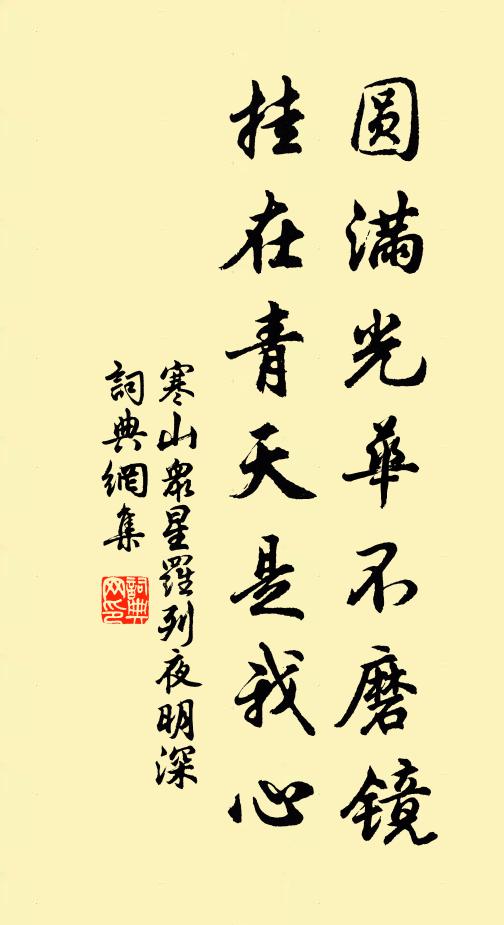 圆满光华不磨镜
挂在青天是我心
寒山众星罗列夜明深
詞典網集
詞典網印